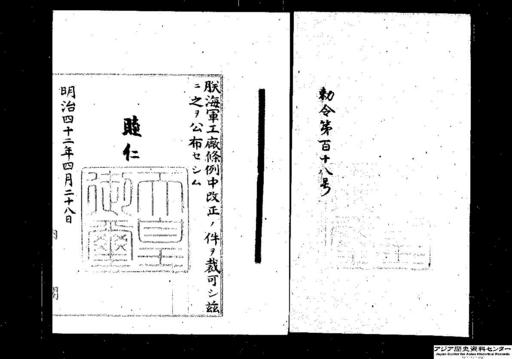 勅令第百十八号
朕海軍工廠條例中改正ノ件ヲ裁可シ茲
ニ之ヲ公布セシム
睦仁
天皇
御璽
明治四十二年四月二十八日
内
閣
アジア歴史資料センター
Japan Center for Asian Historical Records